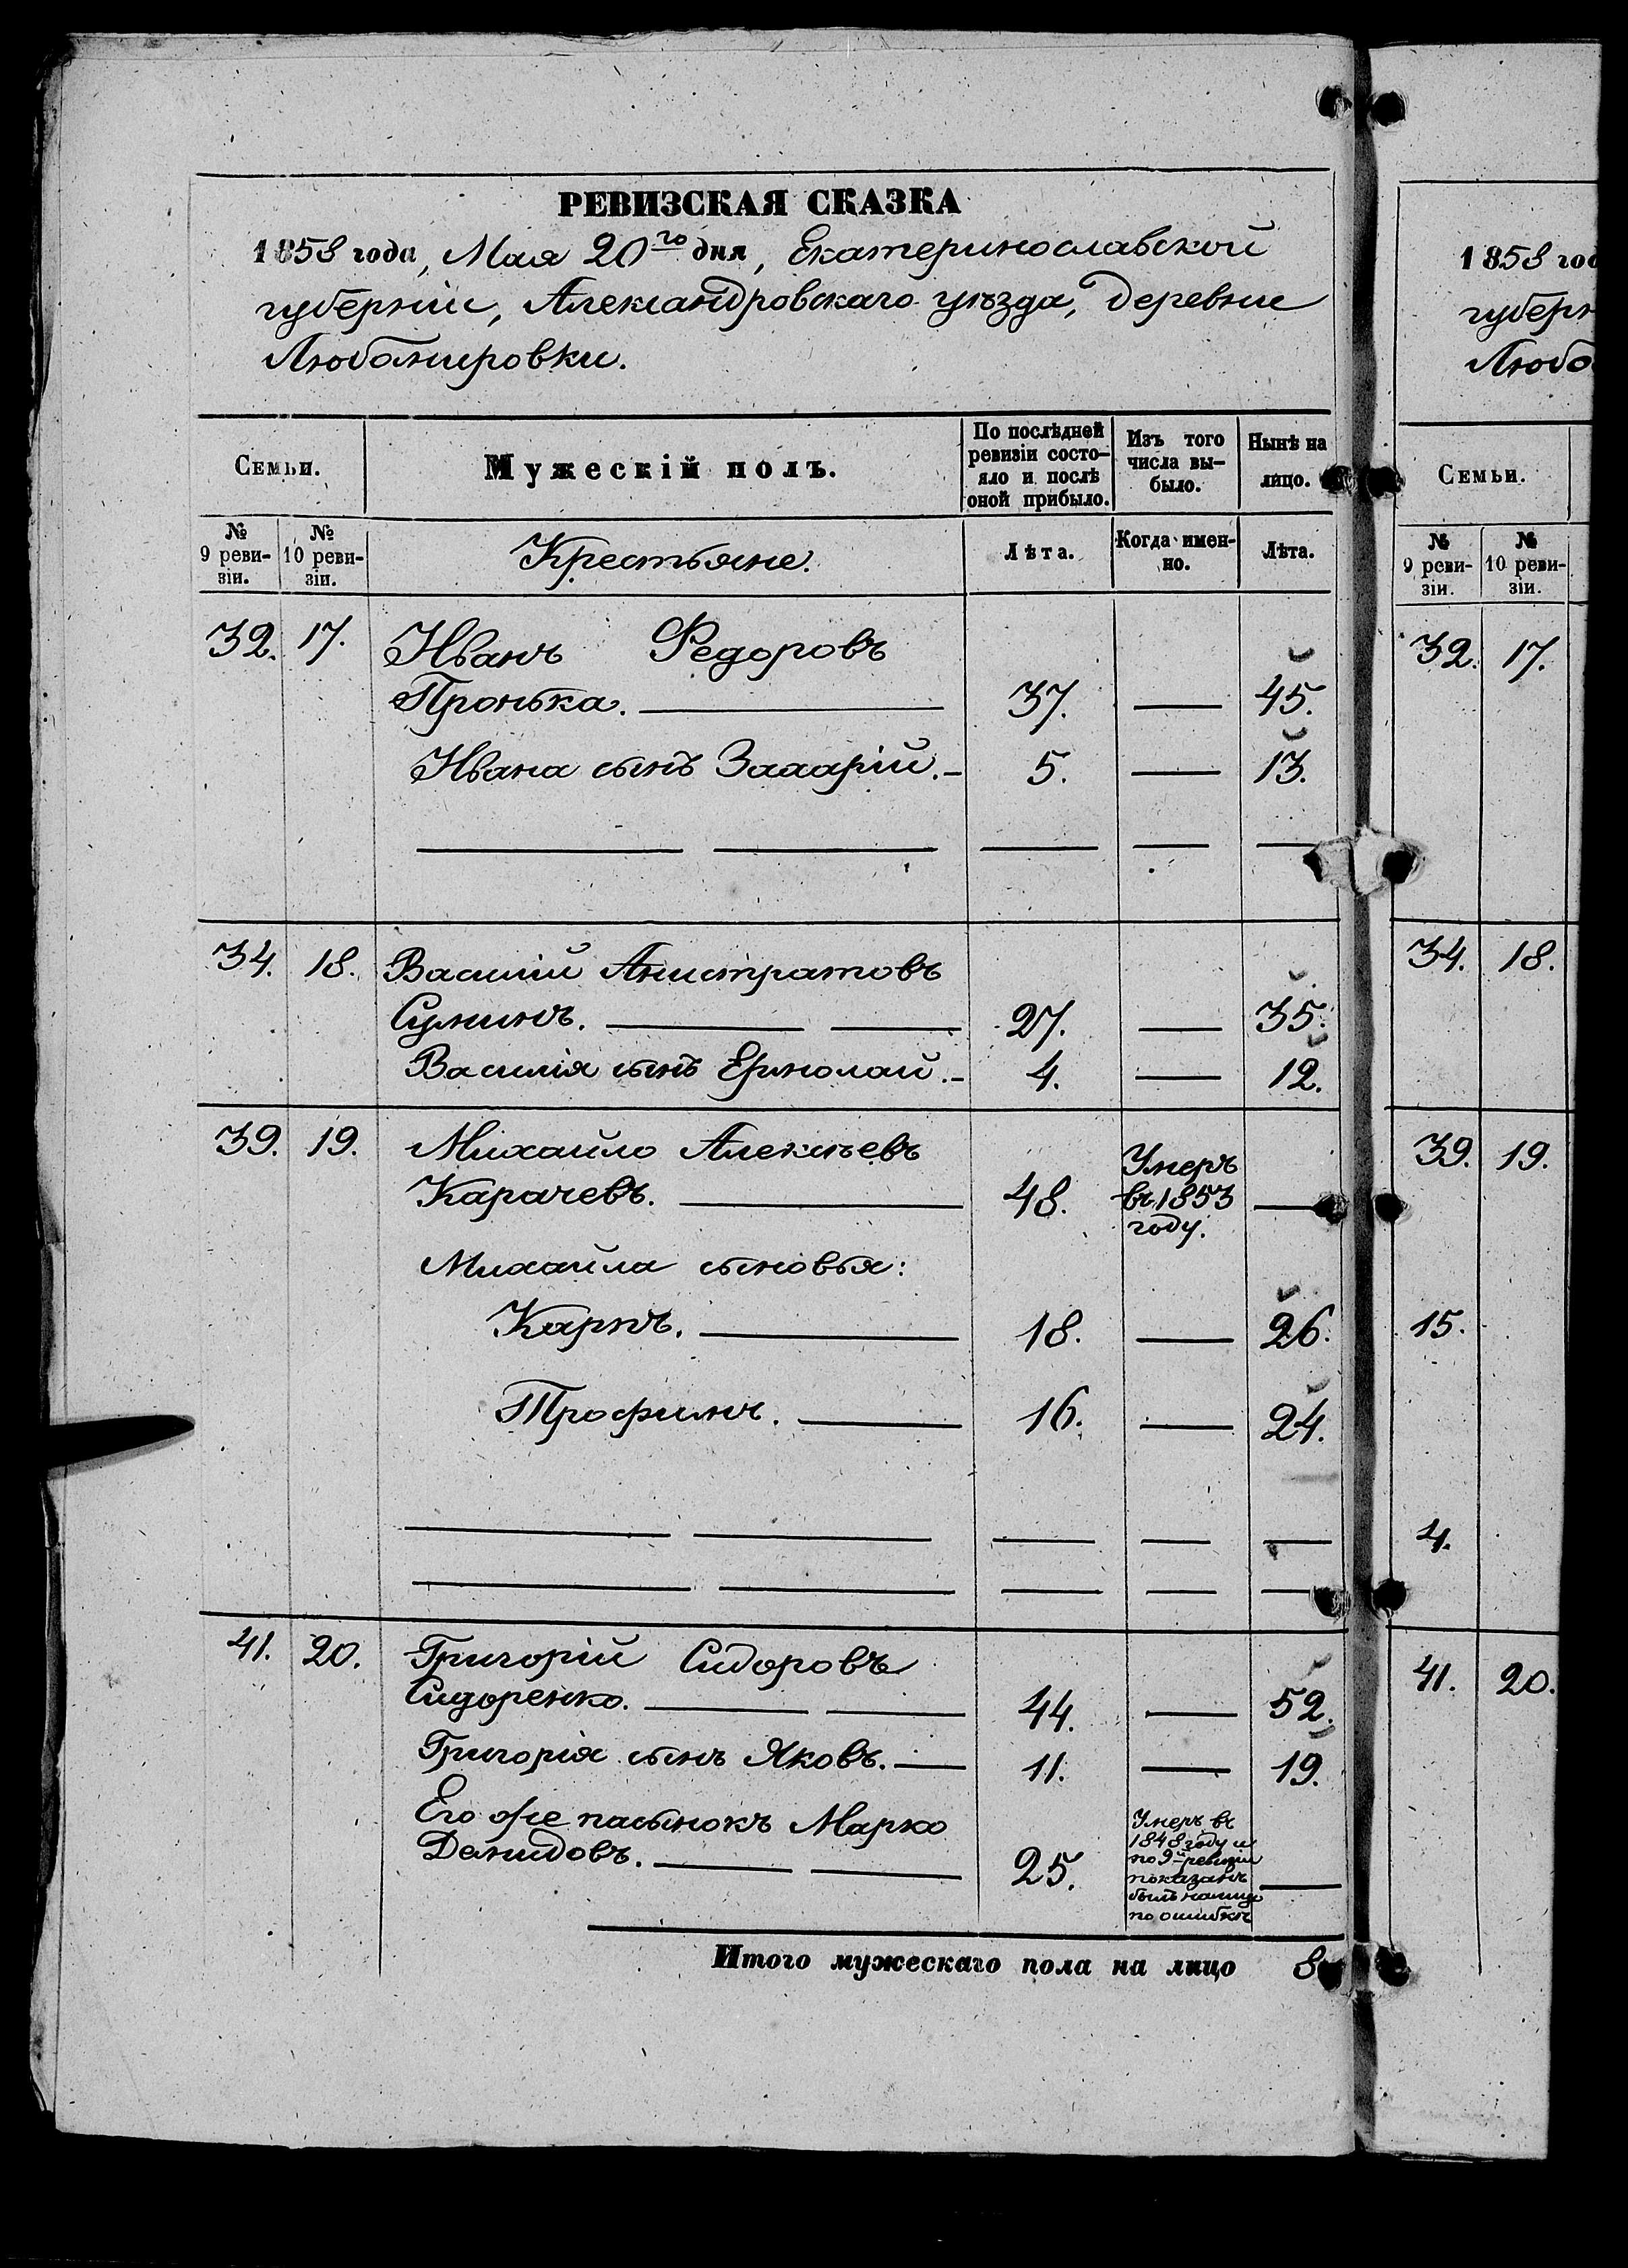 РЕВИЗСКАЯ СКАЗКА
1858 года, Мая 20го дня, Екатеринославской
губерніи, Александровскаго уѣзда, деревни
Любомировки.
Семьи.
Мужескій полъ.
По послѣдней
ревизіи состо-
яло и послѣ
оной прибыло.
Изъ того
числа вы-
было.
Нынѣ на
лицо.
№
9 реви-
зіи.
№
10 реви-
зіи.
Крестьяне.
Лѣта.
Когда имен-
но.
Лѣта.
32. 17. Иванъ Федоровъ
Пронька. — 37. — 45.
Ивана сынъ Захарій. — 5. — 13.
34. 18. Василій Анистратовъ
Сулимъ. — 27. — 35.
Василія сынъ Ермолай. — 4. — 12.
39. 19. Михайло Алексѣевъ
Карачевъ. — 48. Умеръ
въ 1853
году. —
Михайла сыновья:
Карпъ. — 18. — 26.
Трофимъ. — 16. — 24.
41. 20. Григорій Сидоровъ
Сидоренко. — 44. — 52.
Григорія сынъ Яковъ. — 11. — 19.
Его же пасынокъ Марко
Демидовъ. — 25. Умеръ въ
1848 году и
по 9й ревизіи
показанъ
былъ налицо
по ошибкѣ —
Итого мужескаго пола на лицо 8
1858 год
губерн
Любо
Семьи.
№
9 реви-
зіи.
№
10 реви-
зіи.
32. 17.
34. 18.
39. 19.
15.
4.
41. 20.